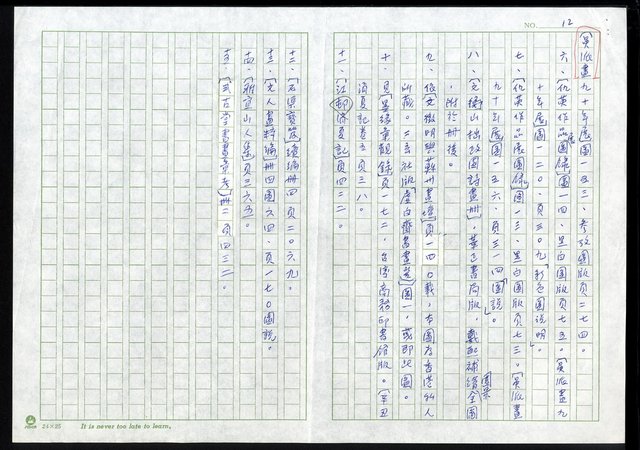 NO. 12
〔吳派畫九十年展〕圖一五三、參攷圖版頁二七四。
六、〔仇英作品展圖錄〕圖一四、黑白圖版頁七五。〔吳派畫九
十年展〕圖一二〇、頁三〇九彩色圖說明。
七、〔仇英作品展圖錄〕圖一三、黑白圖版頁七三。〔吳派畫
九十年展〕圖一五六、頁三一四圖說。
八、〔文衡山拙政園詩畫冊〕,葉正書局版,戴熙補繪全園園景
,附於冊後。
九、據〔文徵明與蘇州畫壇〕頁一四〇載,本圖存香港私人
所藏。二玄社版〔虛白齋書畫選〕圖一,或即此圖。
十、見〔墨緣彙觀錄〕頁一七二,台灣商務印書館版。〔辛丑
消夏記〕卷五頁三八。
十一、〔江邨消夏記〕頁四二二。
十二、〔石渠寶笈續編〕冊四頁二〇六九。
十三、〔文人畫粹編〕冊四圖六四、頁一七〇圖說。
十四、〔雅宜山人集〕頁三六五。
十五、〔式古堂書畫彙考〕冊二頁四三二。
24×25
It is never too late to learn.